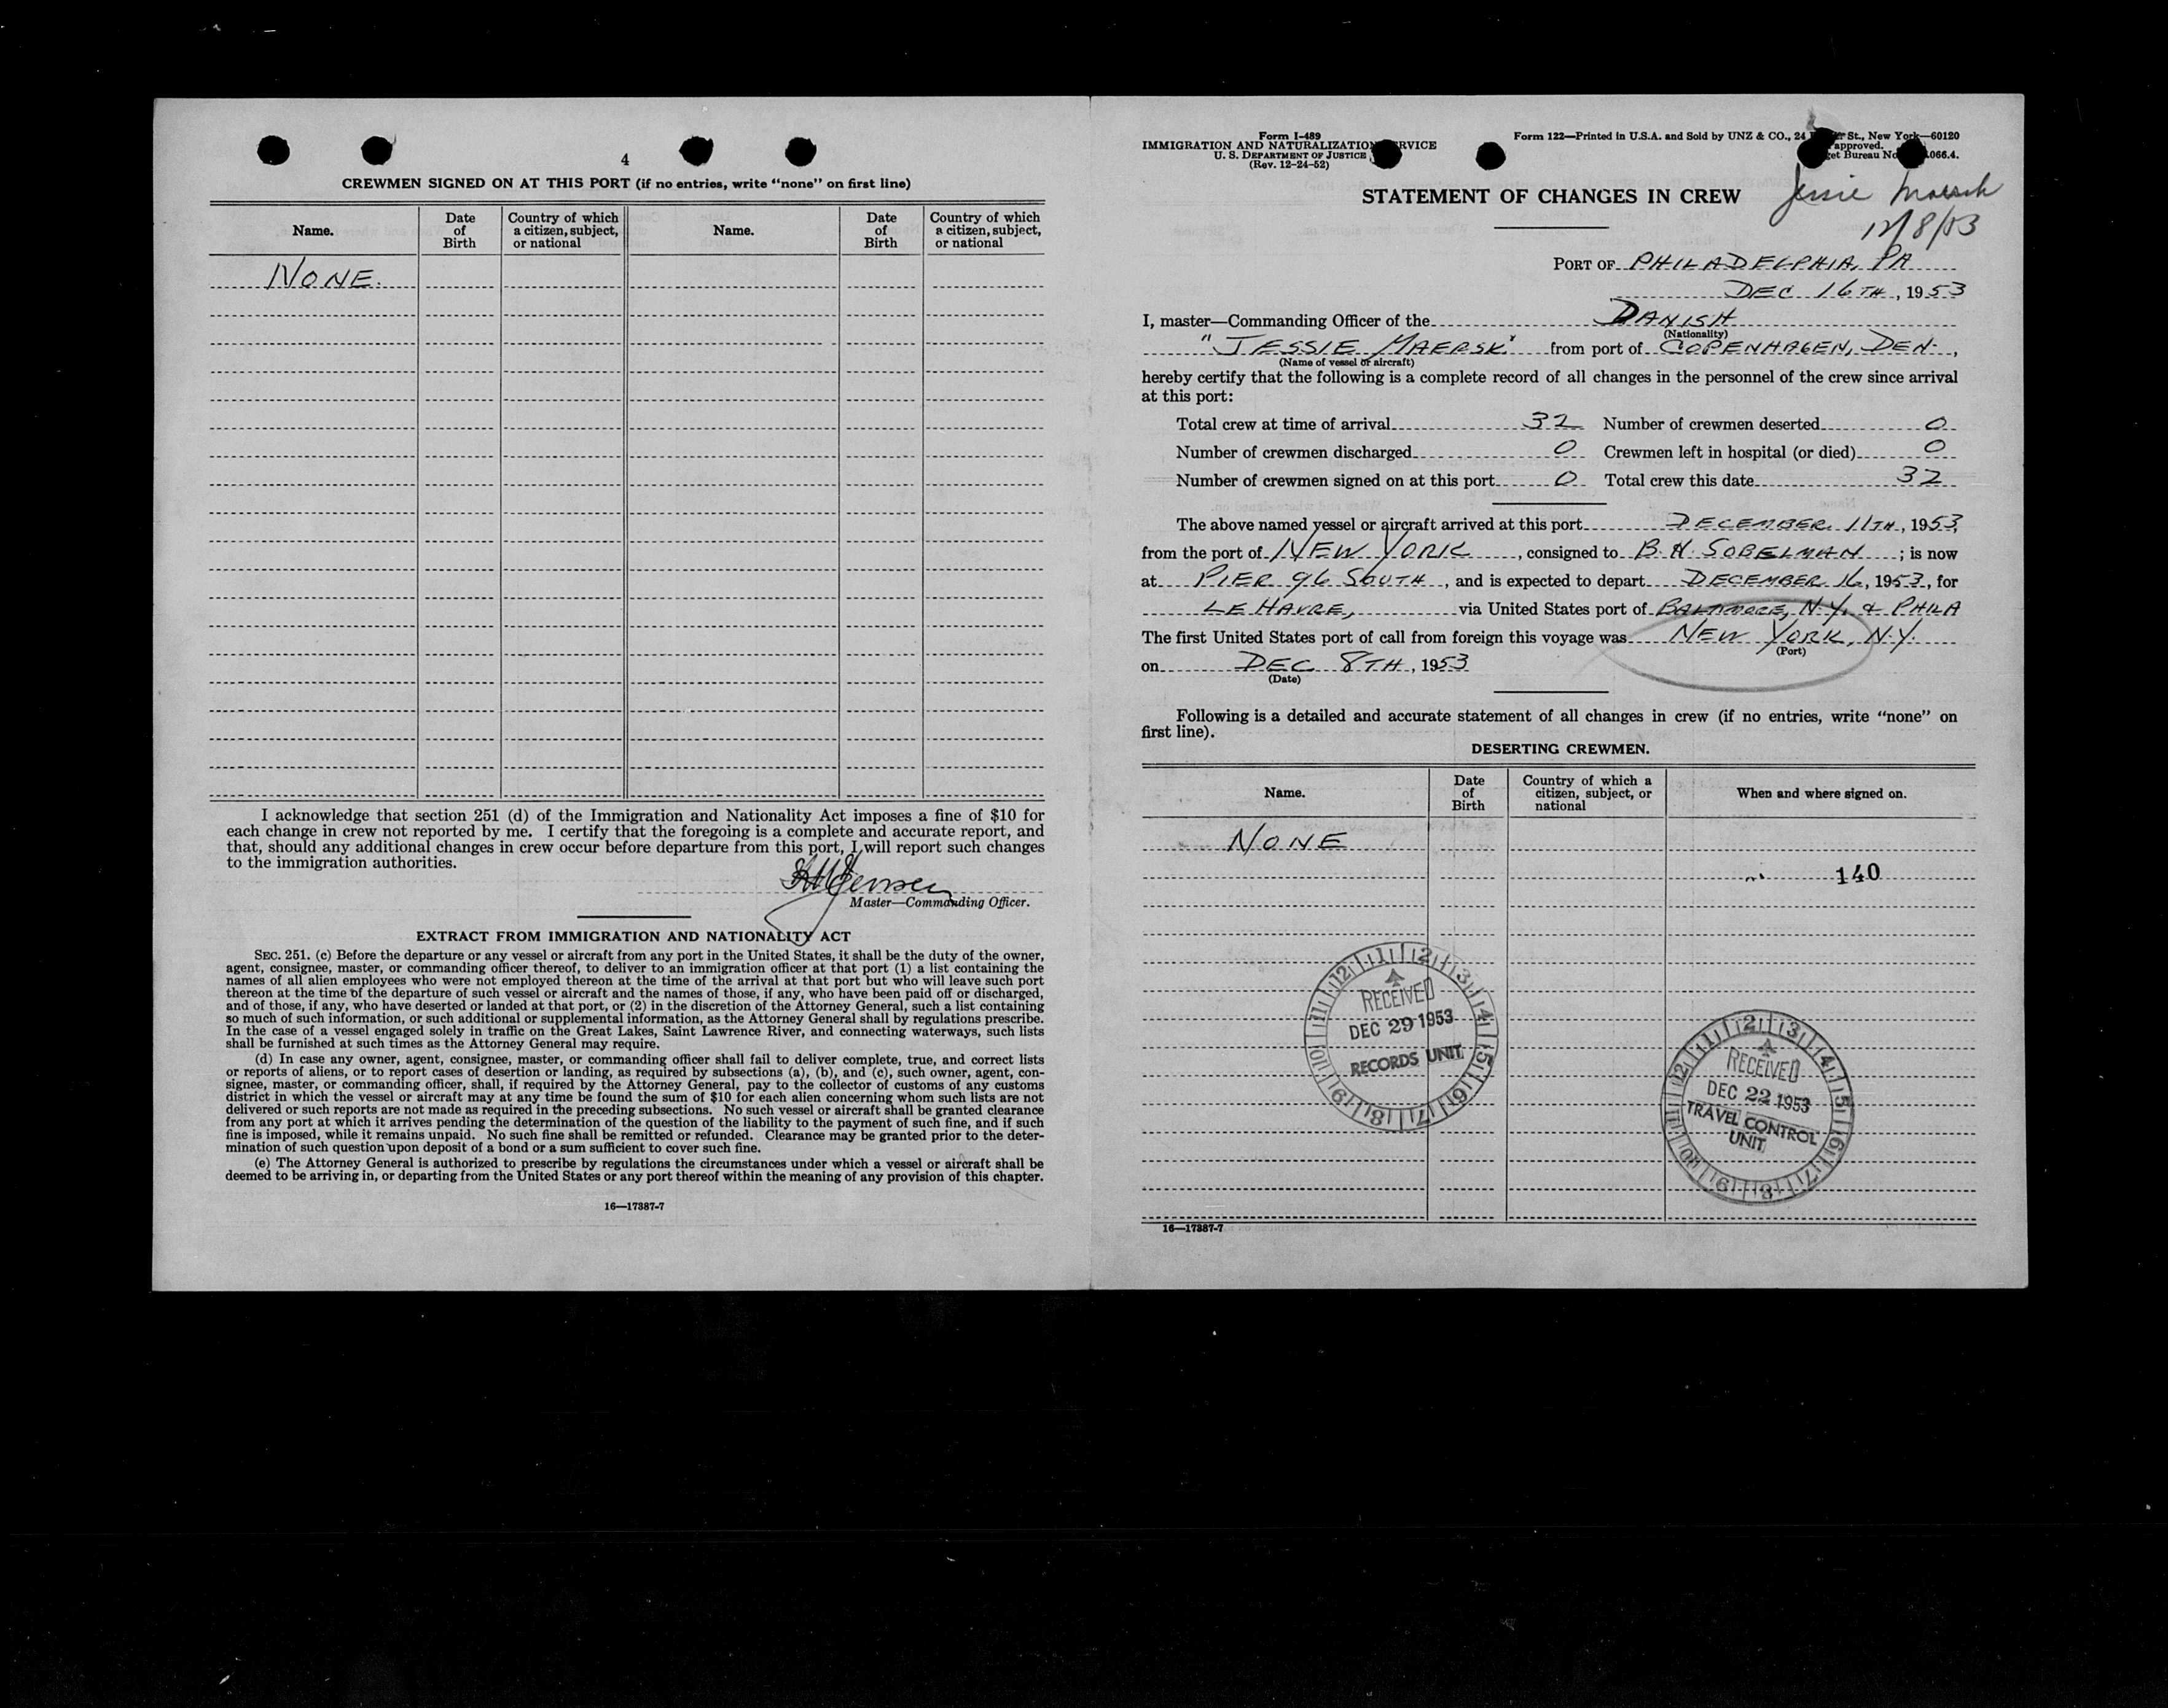 4
CREWMEN SIGNED ON AT THIS PORT (if no entries, write “none” on first line)
Name. Date of Birth Country of which a citizen, subject, or national Name. Date of Birth Country of which a citizen, subject, or national
NONE.
I acknowledge that section 251 (d) of the Immigration and Nationality Act imposes a fine of $10 for
each change in crew not reported by me. I certify that the foregoing is a complete and accurate report, and
that, should any additional changes in crew occur before departure from this port, I will report such changes
to the immigration authorities.
Jensen
Master—Commanding Officer.
EXTRACT FROM IMMIGRATION AND NATIONALITY ACT
SEC. 251. (c) Before the departure or any vessel or aircraft from any port in the United States, it shall be the duty of the owner,
agent, consignee, master, or commanding officer thereof, to deliver to an immigration officer at that port (1) a list containing the
names of all alien employees who were not employed thereon at the time of the arrival at that port but who will leave such port
thereon at the time of the departure of such vessel or aircraft and the names of those, if any, who have been paid off or discharged,
and of those, if any, who have deserted or landed at that port, or (2) in the discretion of the Attorney General, such a list containing
so much of such information, or such additional or supplemental information, as the Attorney General shall by regulations prescribe.
In the case of a vessel engaged solely in traffic on the Great Lakes, Saint Lawrence River, and connecting waterways, such lists
shall be furnished at such times as the Attorney General may require.
(d) In case any owner, agent, consignee, master, or commanding officer shall fail to deliver complete, true, and correct lists
or reports of aliens, or to report cases of desertion or landing, as required by subsections (a), (b), and (c), such owner, agent, con-
signee, master, or commanding officer, shall, if required by the Attorney General, pay to the collector of customs of any customs
district in which the vessel or aircraft may at any time be found the sum of $10 for each alien concerning whom such lists are not
delivered or such reports are not made as required in the preceding subsections. No such vessel or aircraft shall be granted clearance
from any port at which it arrives pending the determination of the question of the liability to the payment of such fine, and if such
fine is imposed, while it remains unpaid. No such fine shall be remitted or refunded. Clearance may be granted prior to the deter-
mination of such question upon deposit of a bond or a sum sufficient to cover such fine.
(e) The Attorney General is authorized to prescribe by regulations the circumstances under which a vessel or aircraft shall be
deemed to be arriving in, or departing from the United States or any port thereof within the meaning of any provision of this chapter.
16—17387-7
Form I-489
IMMIGRATION AND NATURALIZATION SERVICE
U. S. DEPARTMENT OF JUSTICE
(Rev. 12-24-52)
Form 122—Printed in U.S.A. and Sold by UNZ & CO., 24 St., New York—60120
approved.
066.4.
STATEMENT OF CHANGES IN CREW
Jessie Maersk
12/8/53
PORT OF PHILADELPHIA, PA
DEC 16TH, 1953
I, master—Commanding Officer of the DANISH
(Nationality)
"JESSIE MAERSK" from port of COPENHAGEN, DEN.,
(Name of vessel or aircraft)
hereby certify that the following is a complete record of all changes in the personnel of the crew since arrival
at this port:
Total crew at time of arrival 32 Number of crewmen deserted 0
Number of crewmen discharged 0 Crewmen left in hospital (or died) 0
Number of crewmen signed on at this port 0 Total crew this date 32
The above named vessel or aircraft arrived at this port DECEMBER 11TH, 1953,
from the port of NEW YORK, consigned to B. H. SOBELMAN; is now
at PIER 96 SOUTH, and is expected to depart DECEMBER 16, 1953, for
LE HAVRE, via United States port of BALTIMORE, N.Y. & PHILA
The first United States port of call from foreign this voyage was NEW YORK, N.Y.
(Port)
on DEC 8TH, 1953
(Date)
Following is a detailed and accurate statement of all changes in crew (if no entries, write “none” on
first line).
DESERTING CREWMEN.
Name. Date of Birth Country of which a citizen, subject, or national When and where signed on.
NONE
140
12 1 2 3 4 5 6 7 8 9 10 11
RECEIVED
DEC 29 1953
RECORDS UNIT
12 1 2 3 4 5 6 7 8 9 10 11
RECEIVED
DEC 22 1953
TRAVEL CONTROL
UNIT
16—17387-7